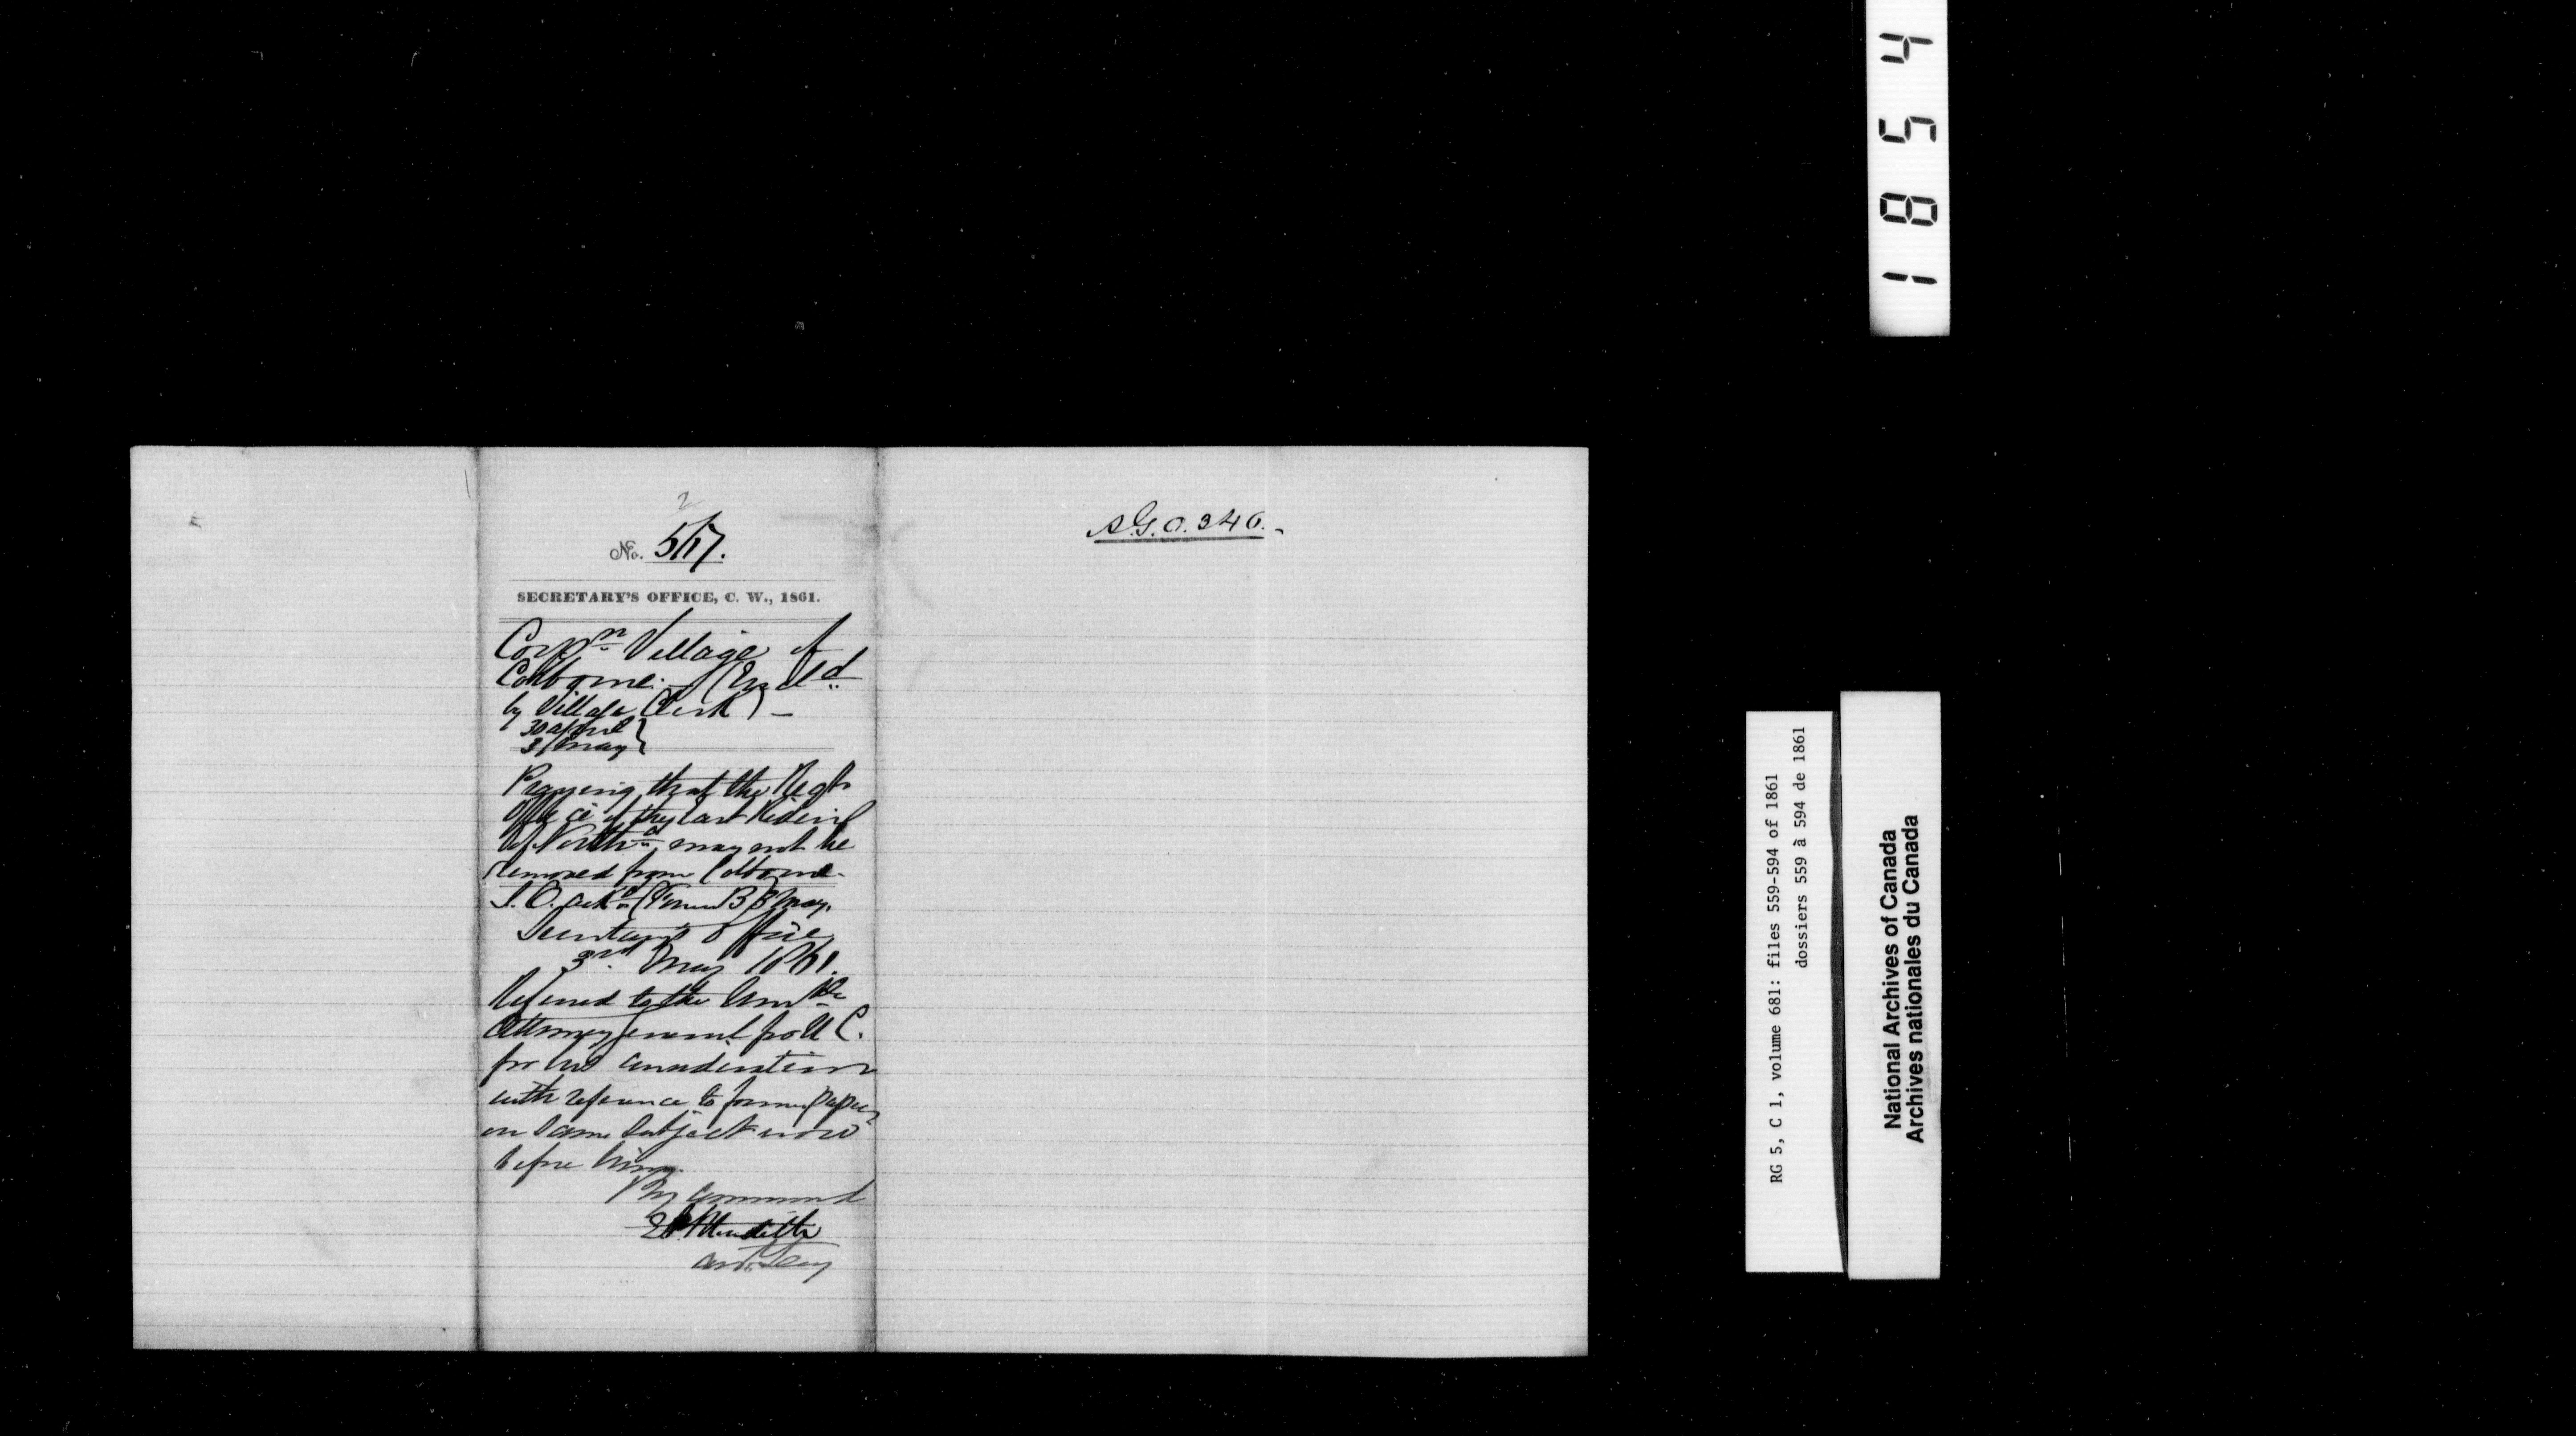 2
No. 567.
SECRETARY'S OFFICE, C. W., 1861.
Corpn Village of
Colborne. (Encld
by Village Clerk) —
30 April
3 May }
Praying that the Regy
Office of the East Riding
of Northd may not be
removed from Colborne.
S. O. ackd (Form B 3 May.
Secretary's Office
3rd May 1861.
Referred to the Honble
Attorney General for U C.
for his consideration
with reference to former papers
on same subject now
before him.
By Command
E A Meredith
Asst. Secy
A.G.O. 346. -
1854
RG 5, C 1, volume 681: files 559-594 of 1861
dossiers 559 à 594 de 1861
National Archives of Canada
Archives nationales du Canada